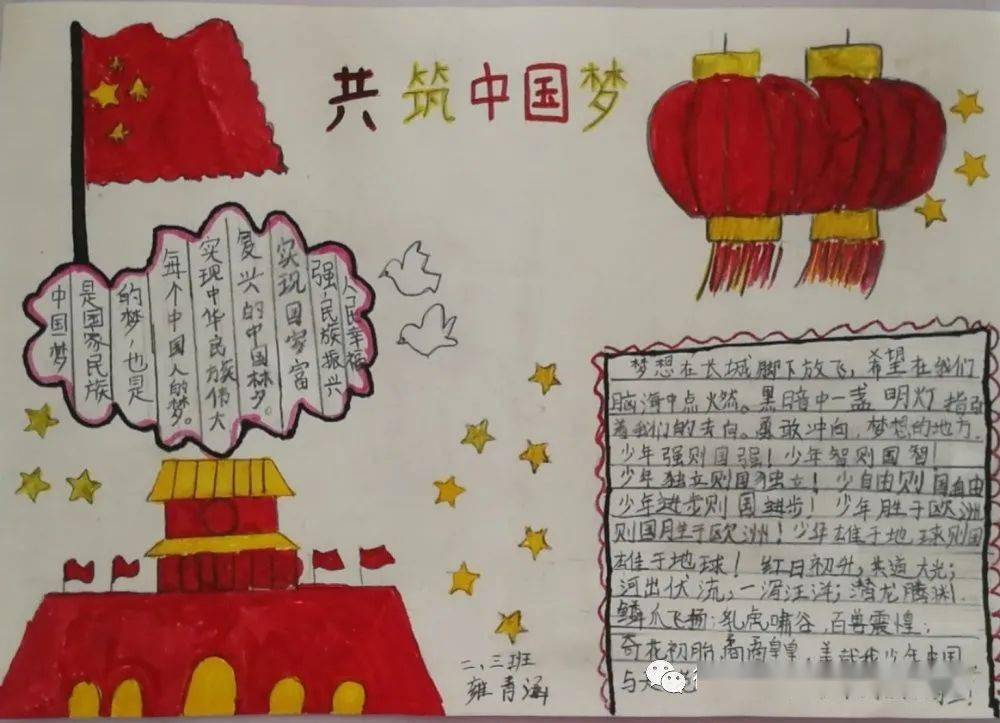 共筑中国梦
中国梦
是国家民族
的梦，也是
每个中国人的梦。
实现中华民族伟大
复兴的中国梦。
实现国家富
强，民族振兴
人民幸福
梦想在长城脚下放飞，希望在我们
脑海中点燃。黑暗中一盏明灯指引
着我们的去向。勇敢冲向，梦想的地方，
少年强则国强！少年智则国智！
少年独立则国独立！少自由则国自由
少年进步则国进步！少年胜于欧洲
则国胜于欧洲！少年雄于地球则国
雄于地球！红日初升，其道大光；
河出伏流，一泻汪洋；潜龙腾渊，
鳞爪飞扬；乳虎啸谷，百兽震惶；
奇花初胎，矞矞皇皇，美哉我少年中国
与天
二、三班
雍青海